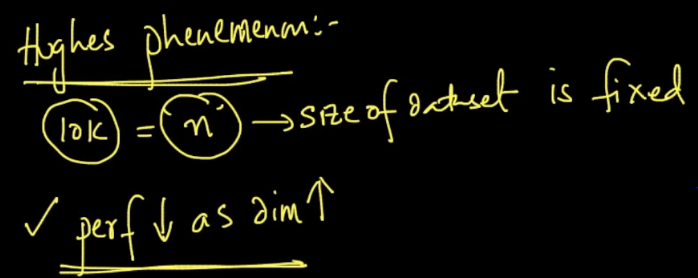 Hughes phenemenon:-
10K = n → size of dataset is fixed
✓ perf ↓ as dim ↑